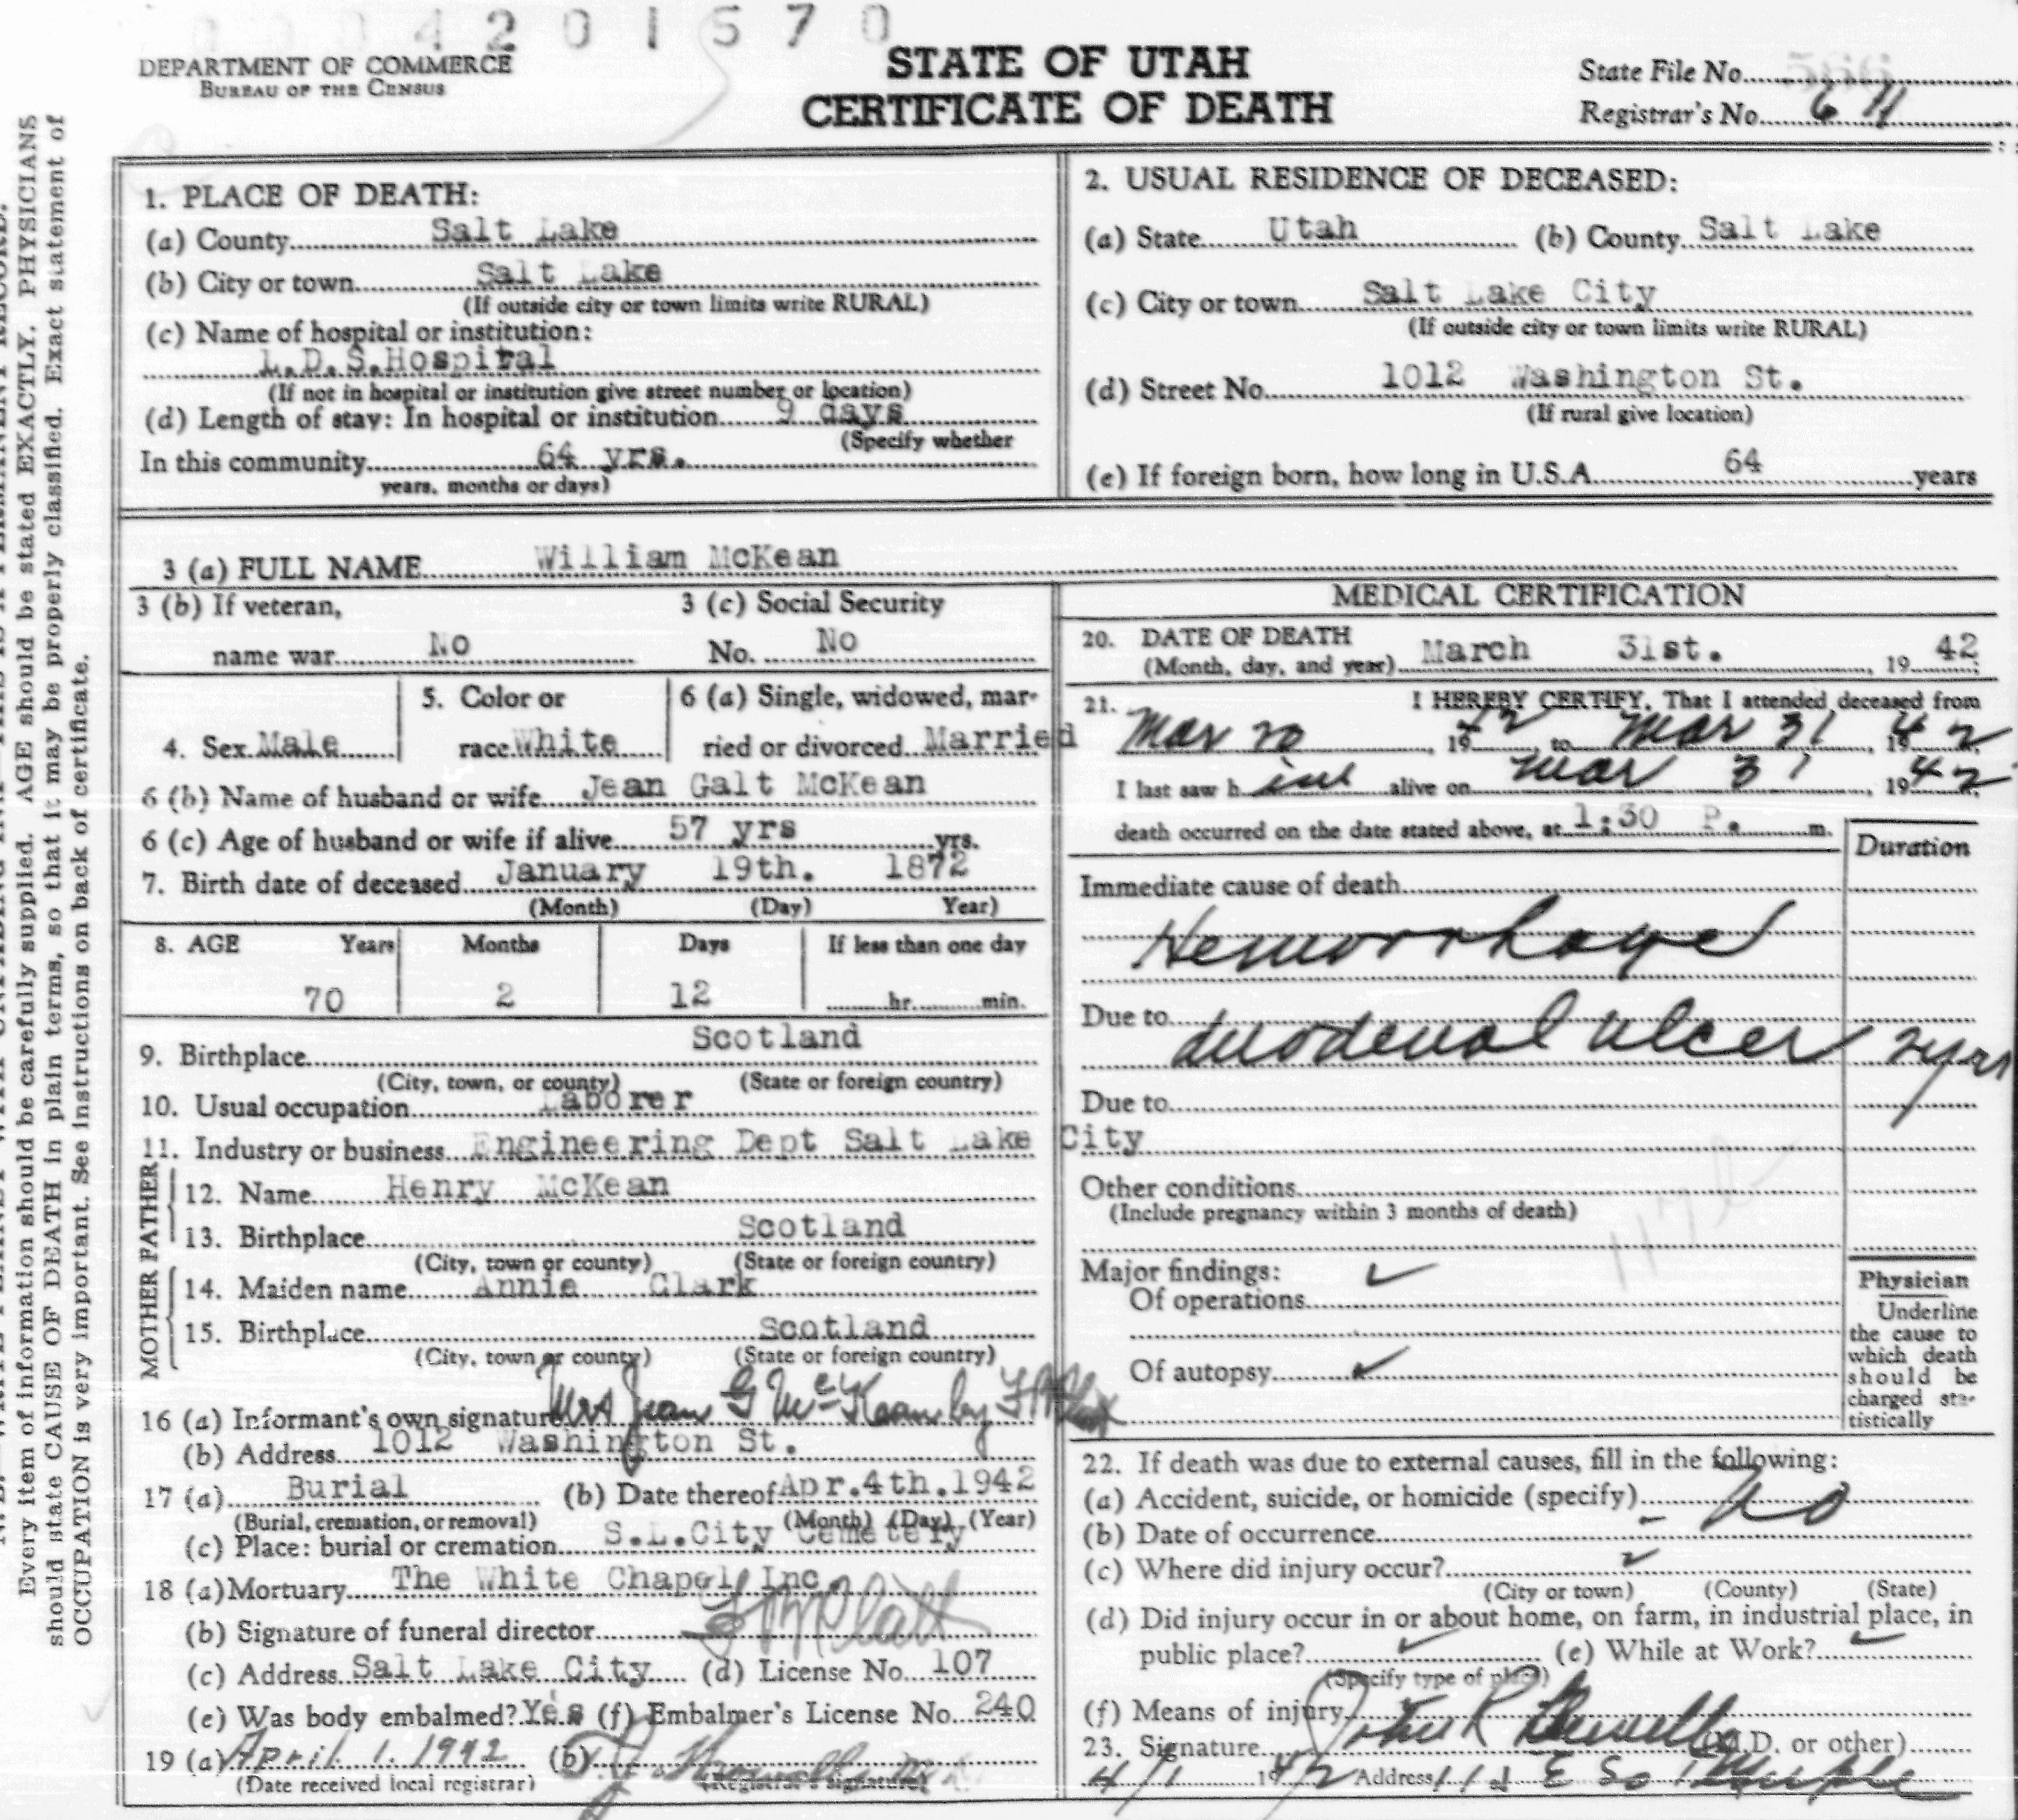 4 2 0 1 5 7 0
DEPARTMENT OF COMMERCE
BUREAU OF THE CENSUS
STATE OF UTAH
CERTIFICATE OF DEATH
State File No. 566
Registrar's No. 611
Every item of information should be carefully supplied. AGE should be stated EXACTLY. PHYSICIANS
should state CAUSE OF DEATH in plain terms, so that it may be properly classified. Exact statement of
OCCUPATION is very important. See instructions on back of certificate.
1. PLACE OF DEATH:
(a) County Salt Lake
(b) City or town Salt Lake
(If outside city or town limits write RURAL)
(c) Name of hospital or institution:
L.D.S.Hospital
(If not in hospital or institution give street number or location)
(d) Length of stay: In hospital or institution 9 days
(Specify whether
In this community 64 yrs.
years, months or days)
2. USUAL RESIDENCE OF DECEASED:
(a) State Utah (b) County Salt Lake
(c) City or town Salt Lake City
(If outside city or town limits write RURAL)
(d) Street No. 1012 Washington St.
(If rural give location)
(e) If foreign born, how long in U.S.A. 64 years
3 (a) FULL NAME William McKean
3 (b) If veteran, 3 (c) Social Security
name war No No. No
4. Sex Male
5. Color or
race White
6 (a) Single, widowed, mar-
ried or divorced Married
6 (b) Name of husband or wife Jean Galt McKean
6 (c) Age of husband or wife if alive 57 yrs yrs.
7. Birth date of deceased January 19th. 1872
(Month) (Day) Year)
8. AGE Years Months Days If less than one day
70 2 12 hr. min.
9. Birthplace Scotland
(City, town, or county) (State or foreign country)
10. Usual occupation Laborer
11. Industry or business Engineering Dept Salt Lake City
FATHER
12. Name Henry McKean
13. Birthplace Scotland
(City, town or county) (State or foreign country)
MOTHER
14. Maiden name Annie Clark
15. Birthplace Scotland
(City, town or county) (State or foreign country)
16 (a) Informant's own signature Mrs Jean G McKean by
(b) Address 1012 Washington St.
17 (a) Burial (b) Date thereof Apr.4th.1942
(Burial, cremation, or removal) (Month) (Day) (Year)
(c) Place: burial or cremation S.L.City Cemetery
18 (a) Mortuary The White Chapel Inc.
(b) Signature of funeral director
(c) Address Salt Lake City (d) License No. 107
(e) Was body embalmed? Yes (f) Embalmer's License No. 240
19 (a) April 1. 1942 (b)
(Date received local registrar) (Registrar's signature)
MEDICAL CERTIFICATION
20. DATE OF DEATH
(Month, day, and year) March 31st. , 19 42
21. I HEREBY CERTIFY, That I attended deceased from
Mar 20 , 19 42 to Mar 31 , 19 42
I last saw h im alive on Mar 31 , 19 42
death occurred on the date stated above, at 1:30 P. m.
Duration
Immediate cause of death
Hemorrhage
Due to
duodenal ulcer 2 yrs
Due to
Other conditions
(Include pregnancy within 3 months of death)
117b
Major findings:
Of operations
Of autopsy
Physician
Underline
the cause to
which death
should be
charged sta-
tistically
22. If death was due to external causes, fill in the following:
(a) Accident, suicide, or homicide (specify) no
(b) Date of occurrence
(c) Where did injury occur?
(City or town) (County) (State)
(d) Did injury occur in or about home, on farm, in industrial place, in
public place? (e) While at Work?
(Specify type of place)
(f) Means of injury
23. Signature John R (M.D. or other)
4/1 1942 Address E So Temple